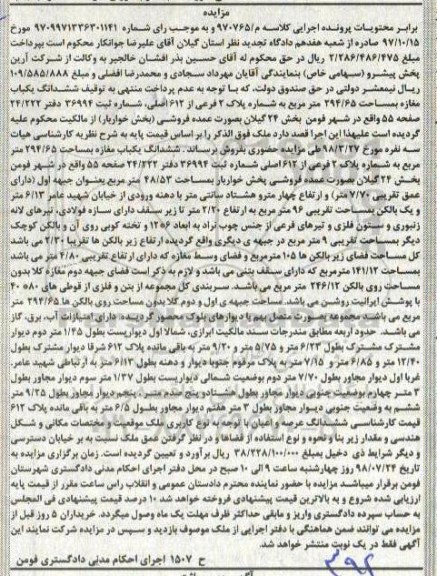 مزایده
برابر محتویات پرونده اجرایی کلاسه م/۹۷۰۷۶۵ و به موجب رای شماره ۹۷۰۹۹۷۱۳۳۶۳۰۱۱۴۱ مورخ
۹۷/۱۰/۱۵ صادره از شعبه هفدهم دادگاه تجدید نظر استان گیلان آقای علیرضا جوانکار محکوم است بپرداخت
مبلغ ۲/۲۸۶/۴۸۶/۴۷۵ ریال در حق محکوم له آقای حسین بذر افشان خالجیر به وکالت از شرکت آرین
پخش پیشرو (سهامی خاص) بنمایندگی آقایان مهرداد سجادی و محمدرضا افضلی و مبلغ ۱۰۹/۵۸۵/۸۸۸
ریال نیمعشر دولتی در حق صندوق دولت، که با توجه به عدم پرداخت منتهی به توقیف ششدانگ یکباب
مغازه بمساحت ۲۹۴/۶۵ متر مربع به شماره پلاک ۲ فرعی از ۶۱۲ اصلی، شماره ثبت ۳۶۹۹۴ دفتر ۲۴/۲۲۲
صفحه ۵۵ واقع در شهر فومن بخش ۲۴ گیلان بصورت عمده فروشی (بخش خواربار) از مالکیت محکوم علیه
گردیده است علیهذا این اجرا قصد دارد ملک فوق الذکر را بر اساس قیمت پایه به شرح نظریه کارشناسی هیات
سه نفره مورخ ۹۸/۳/۲۷ طی مزایده حضوری بفروش برساند. ششدانگ یکباب مغازه بمساحت ۲۹۴/۶۵ متر
مربع به شماره پلاک ۲ فرعی از ۶۱۲ اصلی شماره ثبت ۳۶۹۹۴ دفتر ۲۴/۲۲۲ صفحه ۵۵ واقع در شهر فومن
بخش ۲۴ گیلان بصورت عمده فروشی بخش خواربار بمساحت ۴۸/۵۳ متر مربع بعنوان جبهه اول (دارای
عمق تقریبی ۷/۷۰ متر) و ارتفاع چهار مترو هشتاد سانتی متر با دهنه ورودی از خیابان شهید عامر ۶/۱۳ متر
و یک بالکن بمساحت تقریبی ۹۶ متر مربع به ارتفاع ۲/۲۰ متر تا زیر سقف دارای سازه فولادی، تیرهای لانه
زنبوری و ستون فلزی و تیرهای فرعی از جنس چوب تراد به ابعاد ۶*۱۲ و تخته کوبی روی آن و بالکن کوچک
دیگر بمساحت تقریبی ۹ متر مربع در جبهه ی دیگری واقع گردیده ارتفاع زیر بالکن ها تقریبا ۲/۳۰ می باشد
کل مساحت فضای زیر بالکن ها ۱۰۵ مترمربع و فضای وسط مغازه که دارای ارتفاع تقریبی ۴/۸۰ متر می باشد
بمساحت ۱۴۱/۱۲ مترمربع که دارای سقف بتنی می باشد و لازم به ذکر است فضای جبهه دوم مغازه کلا بدون
مساحت روی بالکن ۲۴۶/۱۲ متر مربع می باشد. سربندی کل مجموعه از بتن و فلزی از قوطی های ۸۰*۴۰
با پوشش ایرانیت روشن می باشد. مساحت جبهه ی اول و دوم کلا بدون مساحت روی بالکن ها ۲۹۴/۶۵ متر
مربع می باشد مجموعه بصورت متصل بهم با دیوارهای بلوک محصور گردیده دارای امتیازات آب، برق، گاز
می باشد. حدود اربعه مطابق مندرجات سند مالکیت ابرازی، شمالا اول دیواریست بطول ۱/۴۵ متر دوم دیوار
مشترک مشترک بطول ۶/۲۳ متر و ۵/۷۵ متر و ۹/۲۰ متر به باقی مانده پلاک ۶۱۲ شرقا دیوار مشترک بطول
۱۲/۴۰ متر و ۶/۸۵ متر و ۷/۱۵ متر به پلاک مرقوم جنوبا دیوار و دهنه بطول ۶/۱۳ متر راه ارتباطی شهید عامر
غربا اول دیوار مجاور بطول ۷/۷۰ متر دوم بوضعیت شمالی دیواریست بطول ۱/۳۷ متر سوم دیوار مجاور بطول
۳ متر چهارم بوضعیت جنوبی دیوار مجاور بطول هشتاد و پنج صدم متر، پنجم دیوار مجاور بطول ۹/۲۵ متر
ششم به وضعیت جنوبی دیوار مجاور بطول ۳ متر هفتم دیوار مجاور بطول ۶/۵ متر به باقی مانده پلاک ۶۱۲
قیمت کارشناسی ششدانگ عرصه و اعیان با توجه به نوع کاربری ملک موقعیت و مختصات مکانی و شکل
هندسی و مقدار زیر بنا و نحوه و نوع استفاده از فضاها و در نظر گرفتن عمق ملک نسبت به بر خیابان دسترسی
و دیگر شرایط ذی دخیل بمبلغ ۳۸/۲۲۸/۱۰۰/۰۰۰ ریال برآورد و تعیین گردیده است. زمان برگزاری مزایده به
تاریخ ۹۸/۰۷/۲۴ روز چهارشنبه ساعت ۹ الی ۱۰ صبح در محل دفتر اجرای احکام مدنی دادگستری شهرستان
فومن برقرار میباشد مزایده با حضور نماینده محترم دادستان عمومی و انقلاب راس ساعت مقرر از قیمت پایه
ارزیابی شده شروع و به بالاترین قیمت پیشنهادی فروخته خواهد شد ۱۰ درصد قیمت پیشنهادی فی المجلس
به حساب سپرده دادگستری واریز و مابقی حداکثر ظرف مهلت یک ماه وصول میگردد. خریداران ۵ روز قبل از
مزایده می توانند ضمن هماهنگی با دفتر اجرایی از ملک موصوف بازدید و سپس در مزایده شرکت نمایند این
آگهی فقط در یک نوبت منتشر خواهد شد.
ح ۱۵۰۷ اجرای احکام مدنی دادگستری فومن